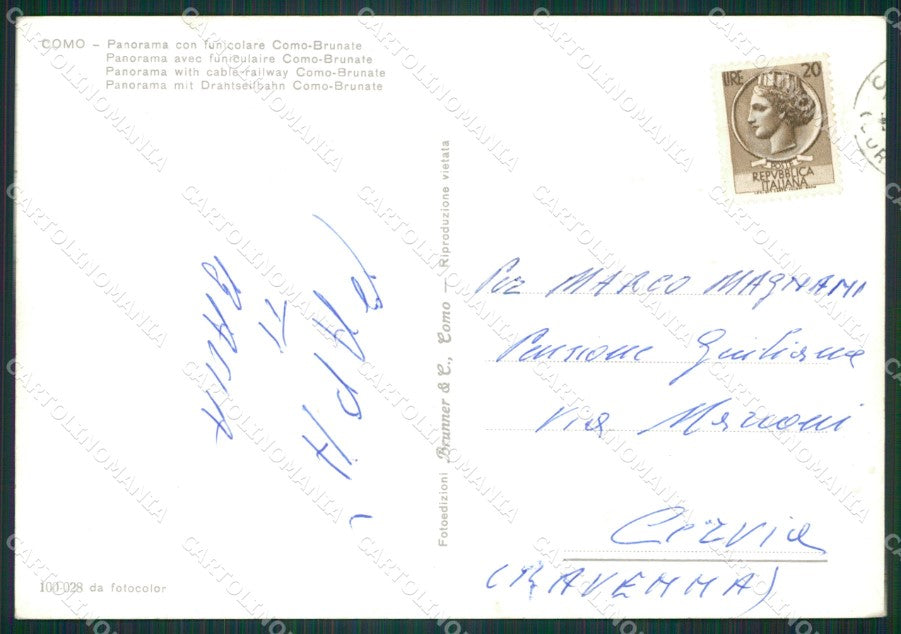 COMO – Panorama con funicolare Como-Brunate
Panorama avec funiculaire Como-Brunate
Panorama with cable-railway Como-Brunate
Panorama mit Drahtseilbahn Como-Brunate
LIRE 20
POSTE
REPVBBLICA
ITALIANA
BACIA
IL
PAPA
Fotoedizioni Brunner & C., Como – Riproduzione vietata
Per MARCO MAGNANI
Pensione Giuliana
Via Marconi
Cervia
(RAVENNA)
100-028 da fotocolor
CARTOLINOMANIA